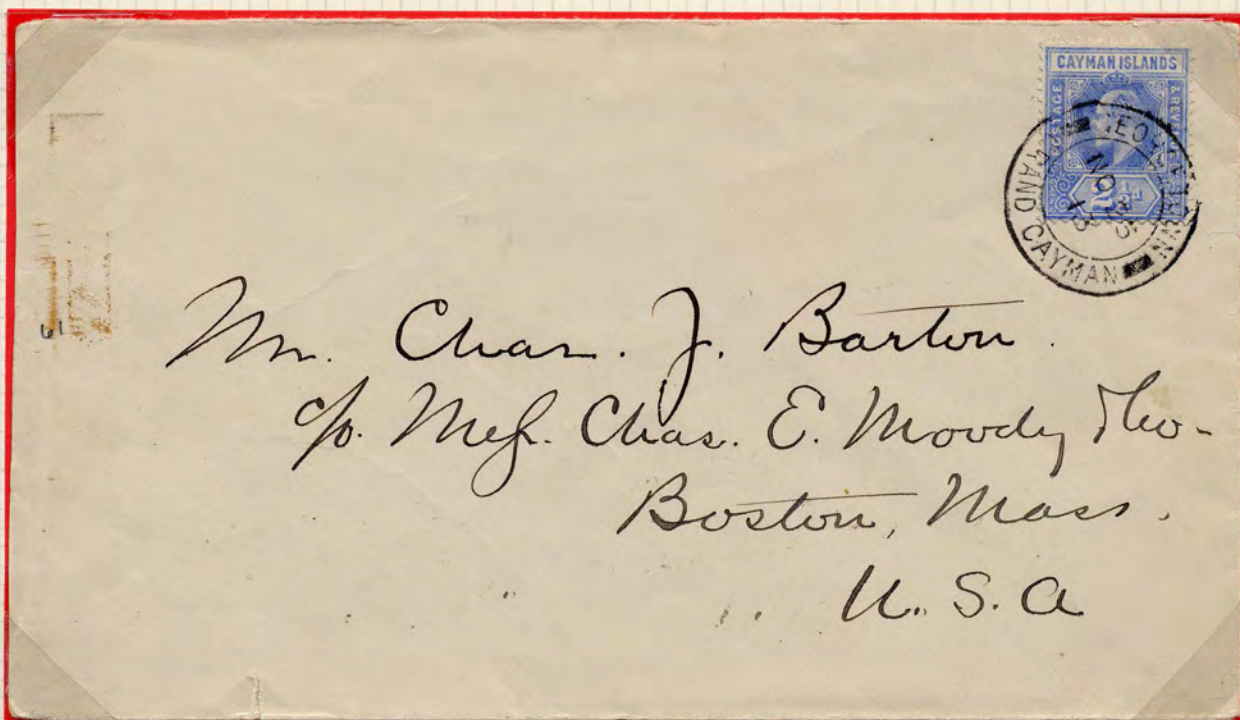 CAYMAN ISLANDS
POSTAGE & REVENUE
2½d
GEORGETOWN
GRAND CAYMAN
NO 25
13
61
Mr. Chas. J. Barton.
c/o. Mess. Chas. E. Moody & Co-
Boston, Mass.
U. S. A